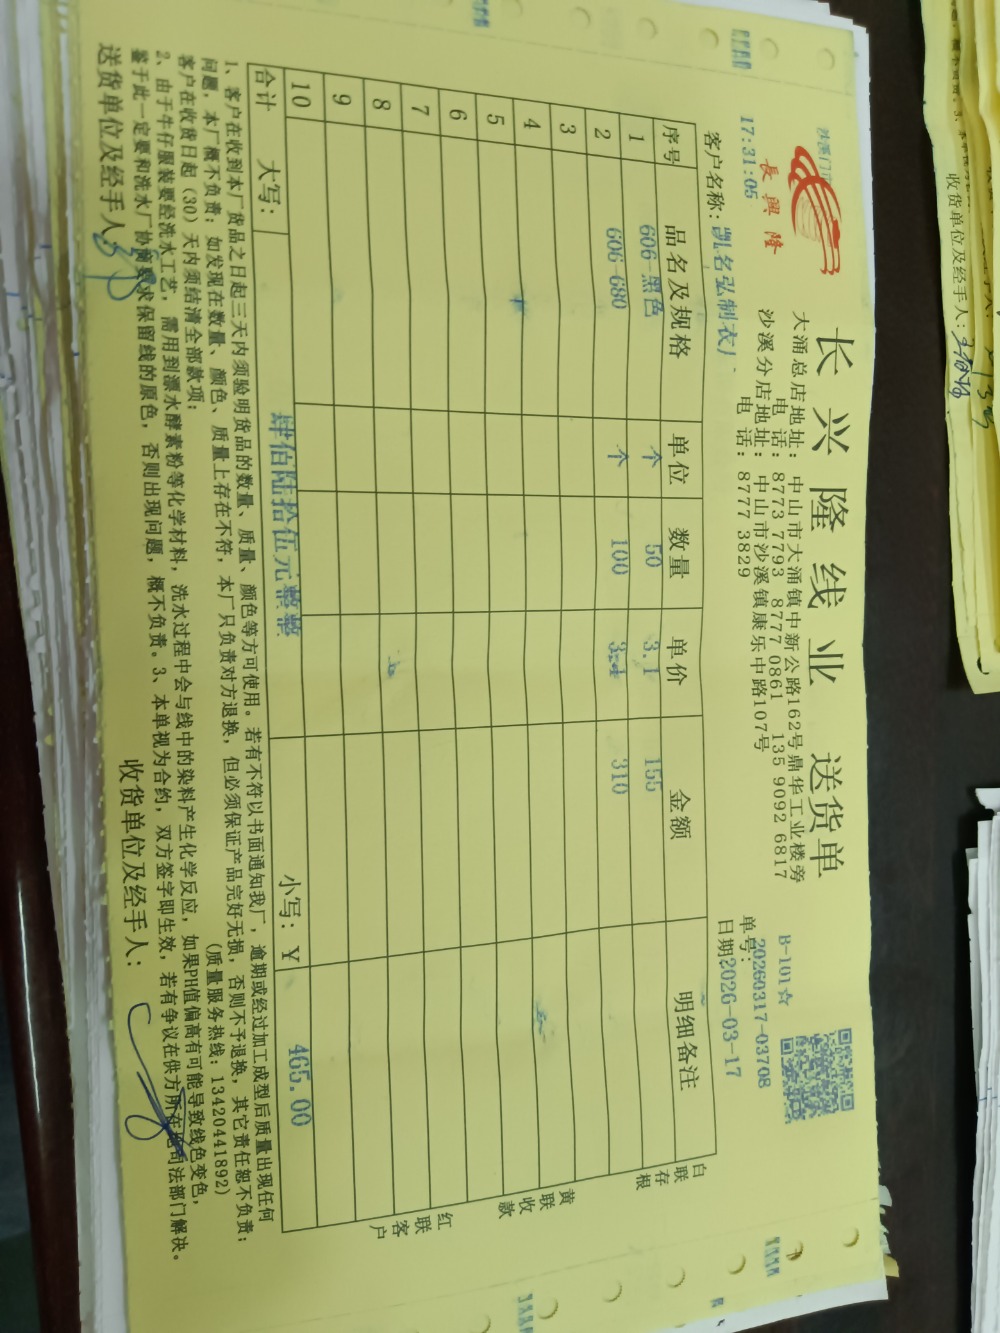 長興隆
长兴隆线业 送货单
大涌总店地址：中山市大涌镇中新公路162号鼎华工业楼旁
电话：8773 7793 8777 0861 135 9092 6817
沙溪分店地址：中山市沙溪镇康乐中路107号
电话：8777 3829
B-101☆
单号：20260317-03708
日期2026-03-17
17:31:05
客户名称：凯名弘制衣厂
序号 品名及规格 单位 数量 单价 金额 明细备注
1 606-黑色 个 50 3.1 155
2 606-680 个 100 3.1 310
3
4
5
6
7
8
9
10
合计 大写： 肆佰陆拾伍元整整 小写：Y 465.00
白联存根
黄联收款
红联客户
1、客户在收到本厂货品之日起三天内须验明货品的数量、质量、颜色等方可使用。若有不符以书面通知我厂，逾期或经过加工成型后质量出现任何
问题，本厂概不负责；如发现在数量、颜色、质量上存在不符，本厂只负责对方退换，但必须保证产品完好无损，否则不予退换，其它责任恕不负责；
客户在收货日起（30）天内须结清全部款项；（质量服务热线：13420441892）
2、由于牛仔服装要经洗水工艺，需用到漂水酵素粉等化学材料，洗水过程中会与线中的染料产生化学反应，如果PH值偏高有可能导致线色变色，
鉴于此一定要和洗水厂协商要求保留线的原色，否则出现问题，概不负责。3、本单视为合约，双方签字即生效，若有争议在供方所在地司法部门解决。
送货单位及经手人：
收货单位及经手人：
收货单位及经手人：